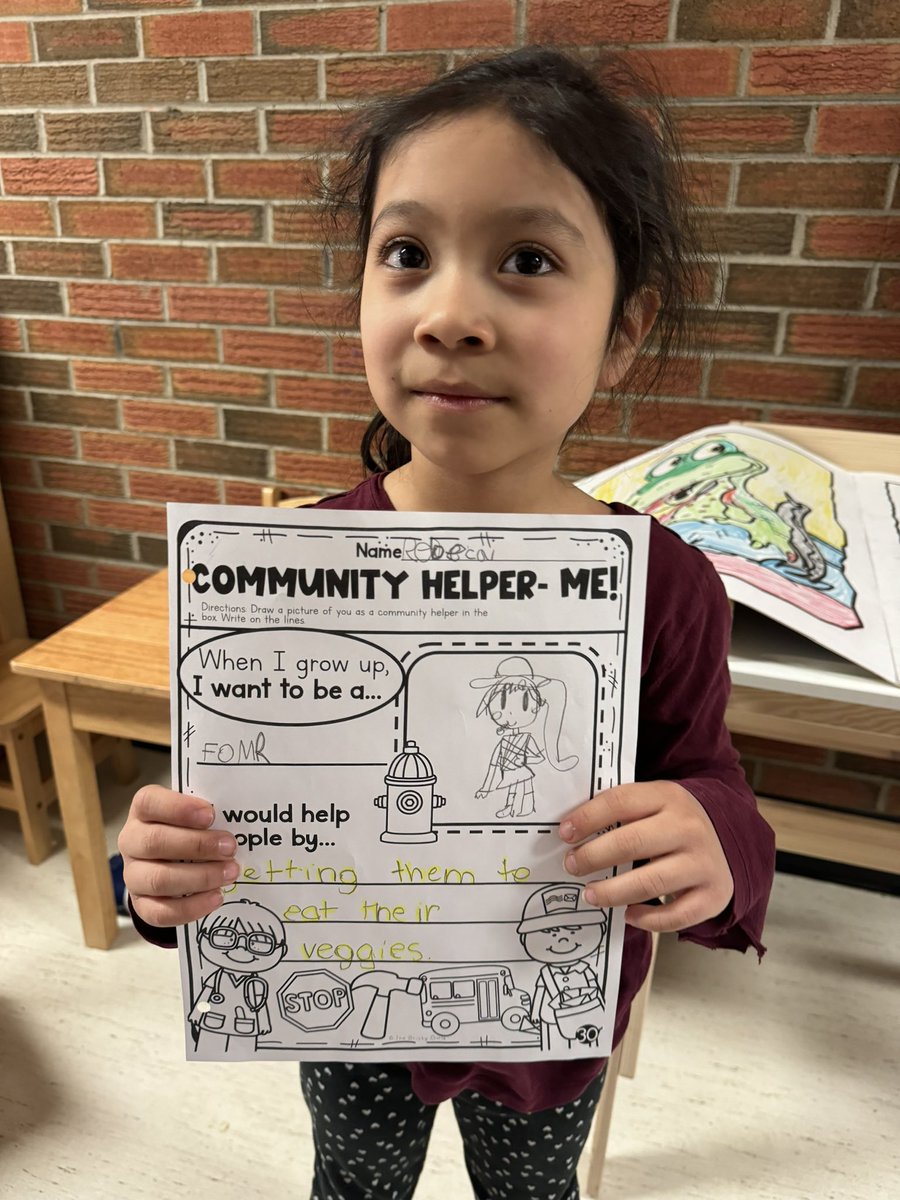 Name Rebecai
COMMUNITY HELPER- ME!
Directions: Draw a picture of you as a community helper in the
box. Write on the lines.
When I grow up,
I want to be a...
FOMR
would help
ople by...
getting them to
eat their
veggies.
STOP
30